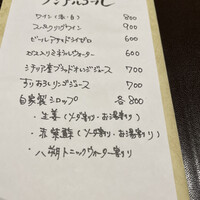 ノンアルコール
ワイン（赤・白） 800
スパークリングワイン 900
ビール アサヒドライゼロ 600
ガス入りミネラルウォーター 600
シチリア産ブラッドオレンジジュース 700
すりおろしリンゴジュース 700
自家製シロップ 各800
・生姜（ソーダ割り・お湯割り）
・赤紫蘇（ソーダ割り・お湯割り）
・八朔トニックウォーター割り